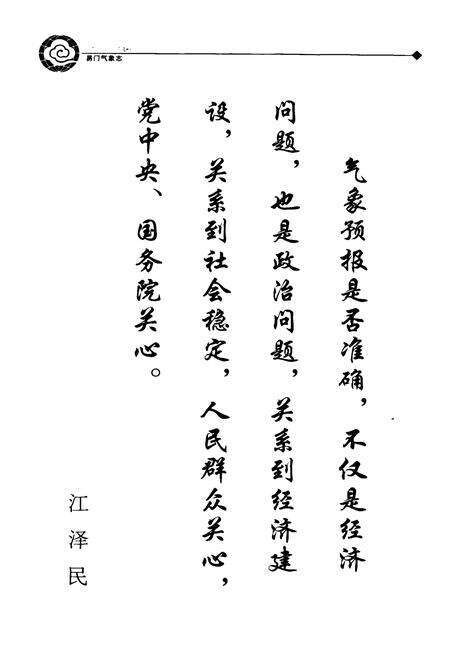 易门气象志
气象预报是否准确，不仅是经济
问题，也是政治问题，关系到经济建
设，关系到社会稳定，人民群众关心，
党中央、国务院关心。
江泽民